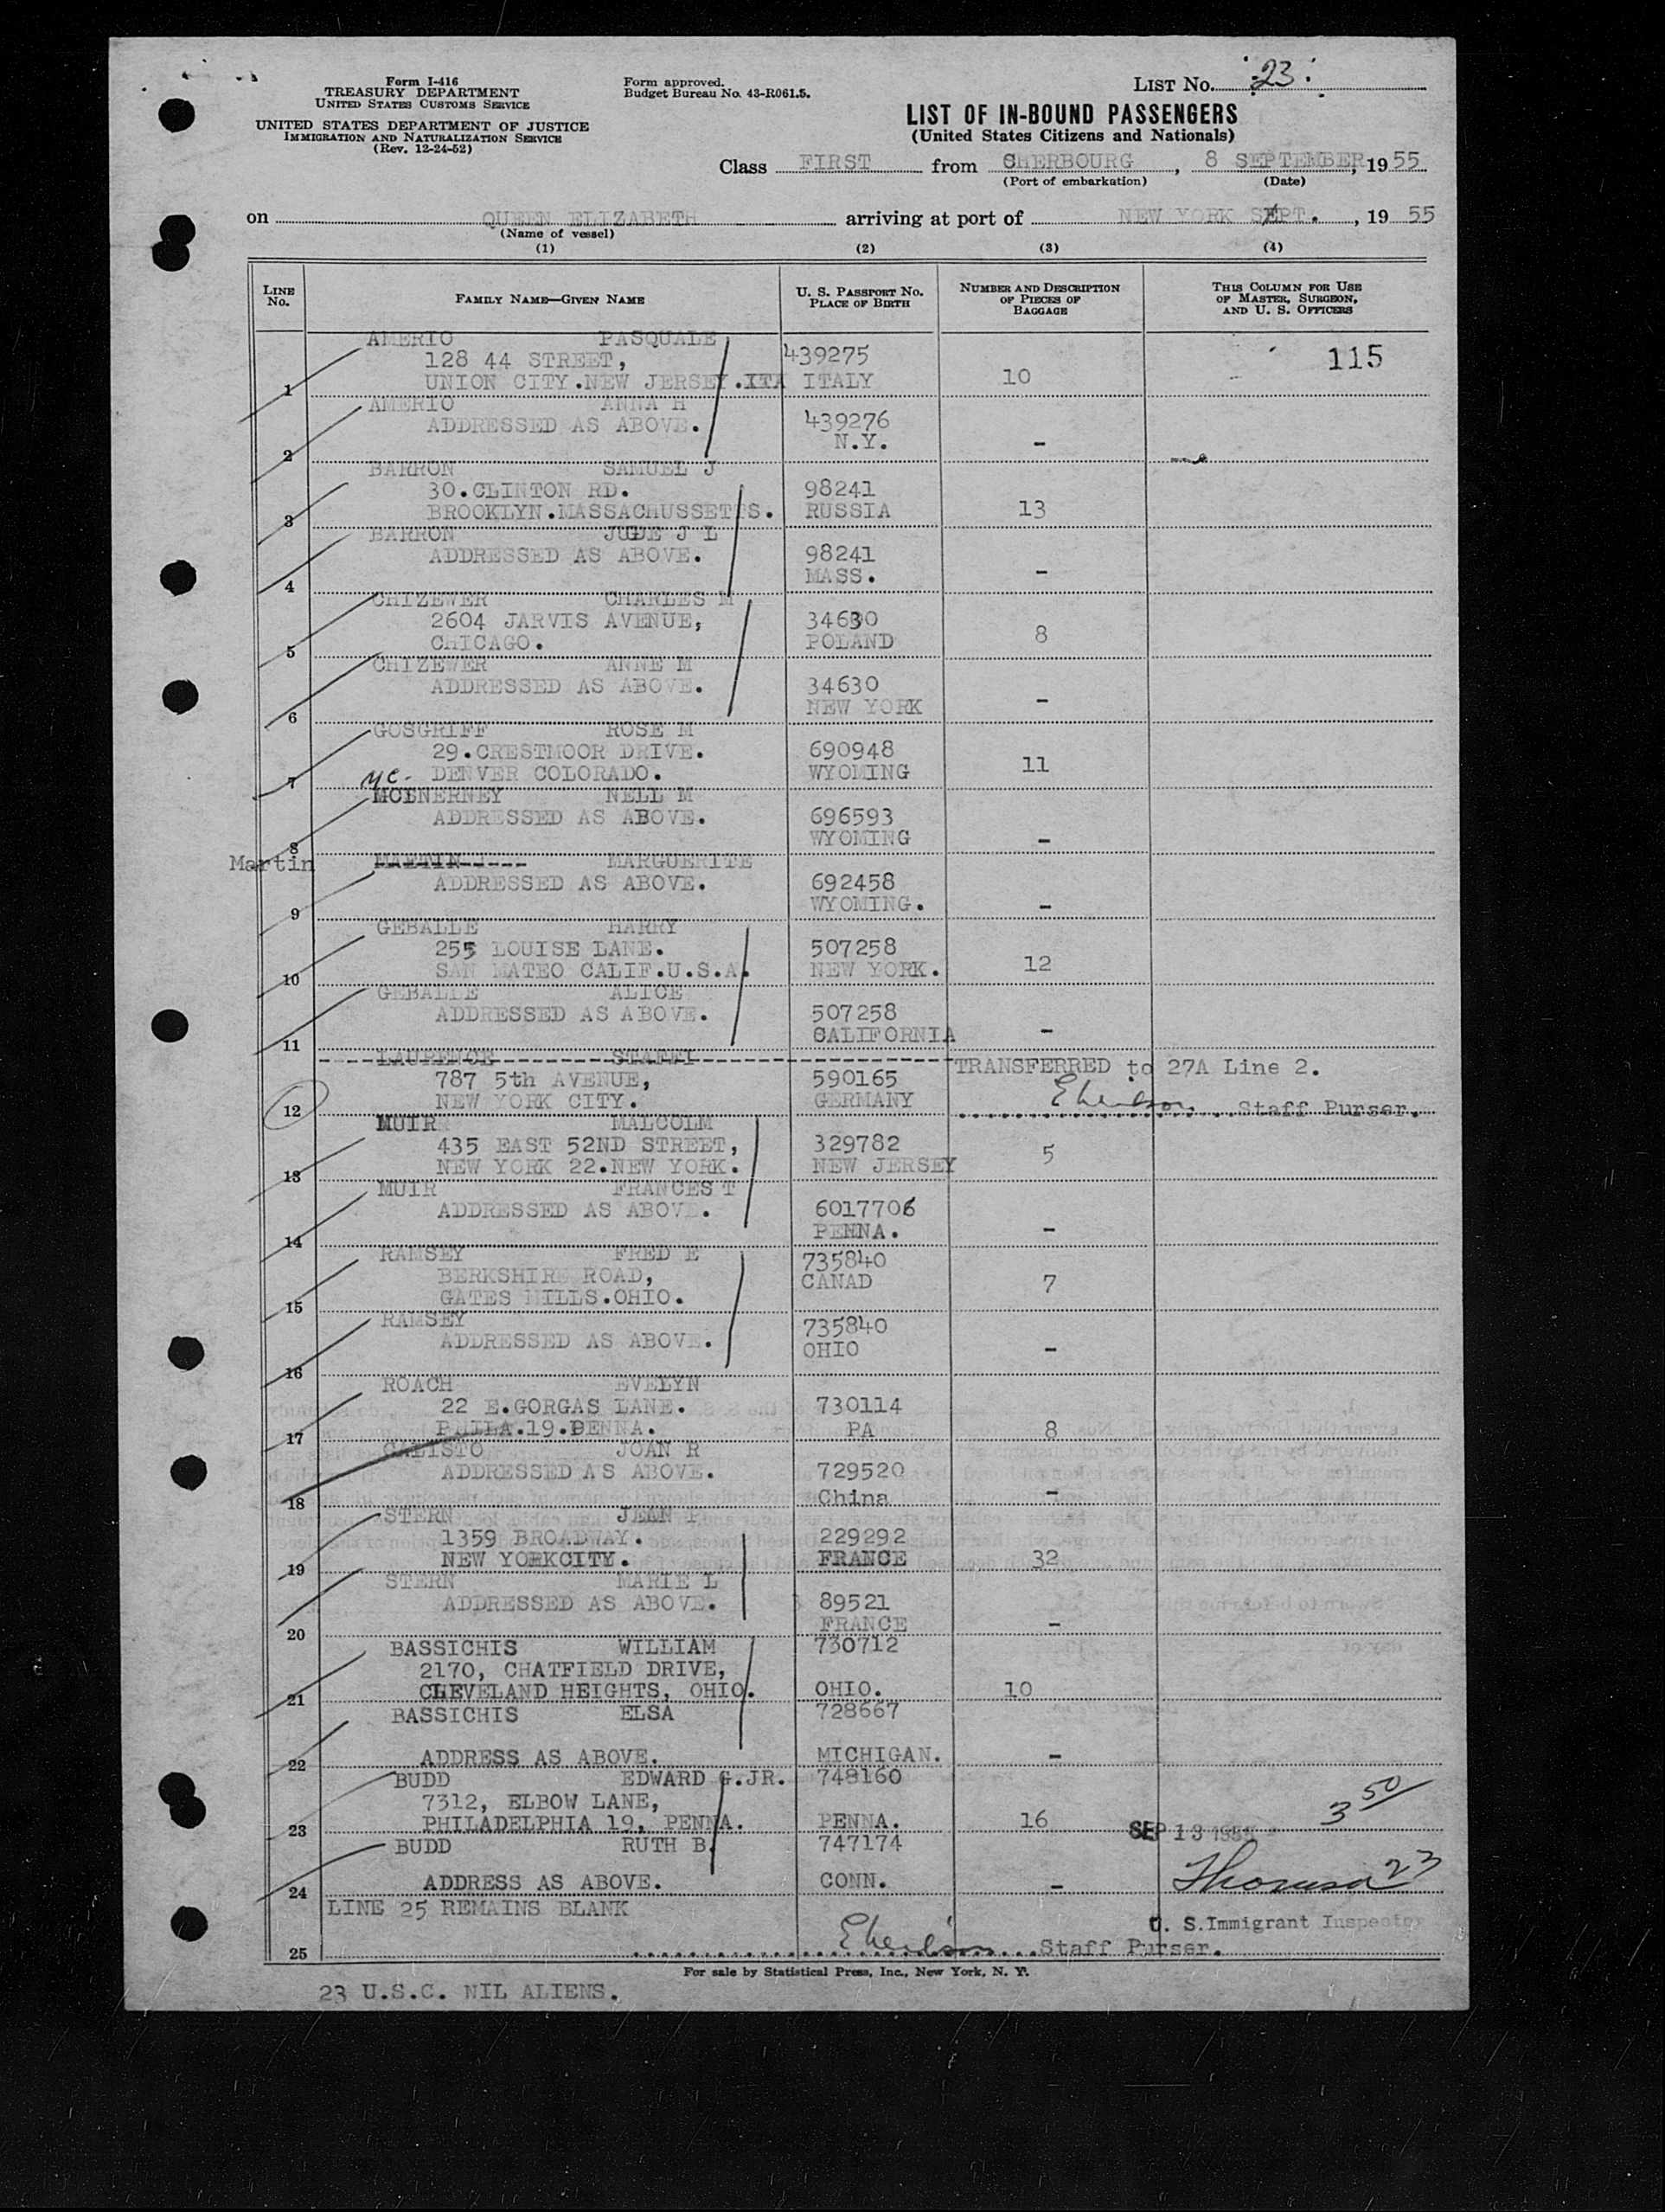 Form I-416
TREASURY DEPARTMENT
UNITED STATES CUSTOMS SERVICE
UNITED STATES DEPARTMENT OF JUSTICE
IMMIGRATION AND NATURALIZATION SERVICE
(Rev. 12-24-52)
Form approved.
Budget Bureau No. 43-R061.5.
LIST No. 23
LIST OF IN-BOUND PASSENGERS
(United States Citizens and Nationals)
Class FIRST from CHERBOURG, 8 SEPTEMBER, 19 55
(Port of embarkation) (Date)
on QUEEN ELIZABETH arriving at port of NEW YORK SEPT., 19 55
(Name of vessel)
(1) (2) (3) (4)
LINE No. FAMILY NAME—GIVEN NAME U. S. PASSPORT No. PLACE OF BIRTH NUMBER AND DESCRIPTION OF PIECES OF BAGGAGE THIS COLUMN FOR USE OF MASTER, SURGEON, AND U. S. OFFICERS
AMERIO PASQUALE
128 44 STREET, 439275 115
1 UNION CITY.NEW JERSEY.ITA ITALY 10
AMERIO ANNA H
ADDRESSED AS ABOVE. 439276
2 N.Y. -
BARRON SAMUEL J
30.CLINTON RD. 98241
3 BROOKLYN.MASSACHUSSETTS. RUSSIA 13
BARRON J L
ADDRESSED AS ABOVE. 98241
4 MASS. -
CHIZEWER CHARLES M
2604 JARVIS AVENUE, 34630
5 CHICAGO. POLAND 8
CHIZEWER ANNE M
ADDRESSED AS ABOVE. 34630
6 NEW YORK -
GOSGRIFF ROSE M
29.CRESTMOOR DRIVE. 690948
7 DENVER COLORADO. WYOMING 11
Mc. MCINERNEY NELL M
ADDRESSED AS ABOVE. 696593
8 WYOMING -
Martin MARTIN MARGUERITE
ADDRESSED AS ABOVE. 692458
9 WYOMING. -
GEBALLE HARRY
255 LOUISE LANE. 507258
10 SAN MATEO CALIF.U.S.A. NEW YORK. 12
GEBALLE ALICE
ADDRESSED AS ABOVE. 507258
11 CALIFORNIA -
LAURENCE STAFFI TRANSFERRED to 27A Line 2.
787 5th AVENUE, 590165
12 NEW YORK CITY. GERMANY Staff Purser.
MUIR MALCOLM
435 EAST 52ND STREET, 329782
13 NEW YORK 22.NEW YORK. NEW JERSEY 5
MUIR FRANCES T
ADDRESSED AS ABOVE. 6017706
14 PENNA. -
RAMSEY FRED E 735840
BERKSHIRE ROAD, CANAD
15 GATES MILLS.OHIO. 7
RAMSEY 735840
ADDRESSED AS ABOVE. OHIO
16 -
ROACH EVELYN
22 E.GORGAS LANE. 730114
17 PHILA.19.PENNA. PA 8
CALISTO JOAN R
ADDRESSED AS ABOVE. 729520
18 China -
STERN JEAN P
1359 BROADWAY. 229292
19 NEW YORKCITY. FRANCE 32
STERN MARIE L
ADDRESSED AS ABOVE. 89521
20 FRANCE -
BASSICHIS WILLIAM 730712
2170, CHATFIELD DRIVE,
21 CLEVELAND HEIGHTS, OHIO. OHIO. 10
BASSICHIS ELSA 728667
22 ADDRESS AS ABOVE. MICHIGAN. -
BUDD EDWARD G.JR. 748160
7312, ELBOW LANE, 3 50
23 PHILADELPHIA 19, PENNA. PENNA. 16 SEP 13 1955
BUDD RUTH B. 747174
24 ADDRESS AS ABOVE. CONN. - 23
LINE 25 REMAINS BLANK
U. S.Immigrant Inspector
25 Staff Purser.
For sale by Statistical Press, Inc., New York, N. Y.
23 U.S.C. NIL ALIENS.